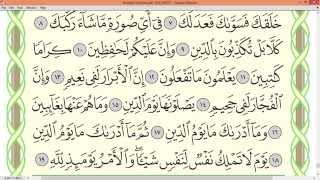 خَلَقَكَ فَسَوَّىٰكَ فَعَدَلَكَ ٧ فِىٓ أَىِّ صُورَةٍ مَّا شَآءَ رَكَّبَكَ ٨
كَلَّا بَلْ تُكَذِّبُونَ بِٱلدِّينِ ٩ وَإِنَّ عَلَيْكُمْ لَحَـٰفِظِينَ ١٠ كِرَامًا
كَـٰتِبِينَ ١١ يَعْلَمُونَ مَا تَفْعَلُونَ ١٢ إِنَّ ٱلْأَبْرَارَ لَفِى نَعِيمٍ ١٣ وَإِنَّ
ٱلْفُجَّارَ لَفِى جَحِيمٍ ١٤ يَصْلَوْنَهَا يَوْمَ ٱلدِّينِ ١٥ وَمَا هُمْ عَنْهَا بِغَآئِبِينَ
١٦ وَمَآ أَدْرَىٰكَ مَا يَوْمُ ٱلدِّينِ ١٧ ثُمَّ مَآ أَدْرَىٰكَ مَا يَوْمُ ٱلدِّينِ
١٨ يَوْمَ لَا تَمْلِكُ نَفْسٌ لِّنَفْسٍ شَيْـًٔا ۖ وَٱلْأَمْرُ يَوْمَئِذٍ لِّلَّهِ ١٩